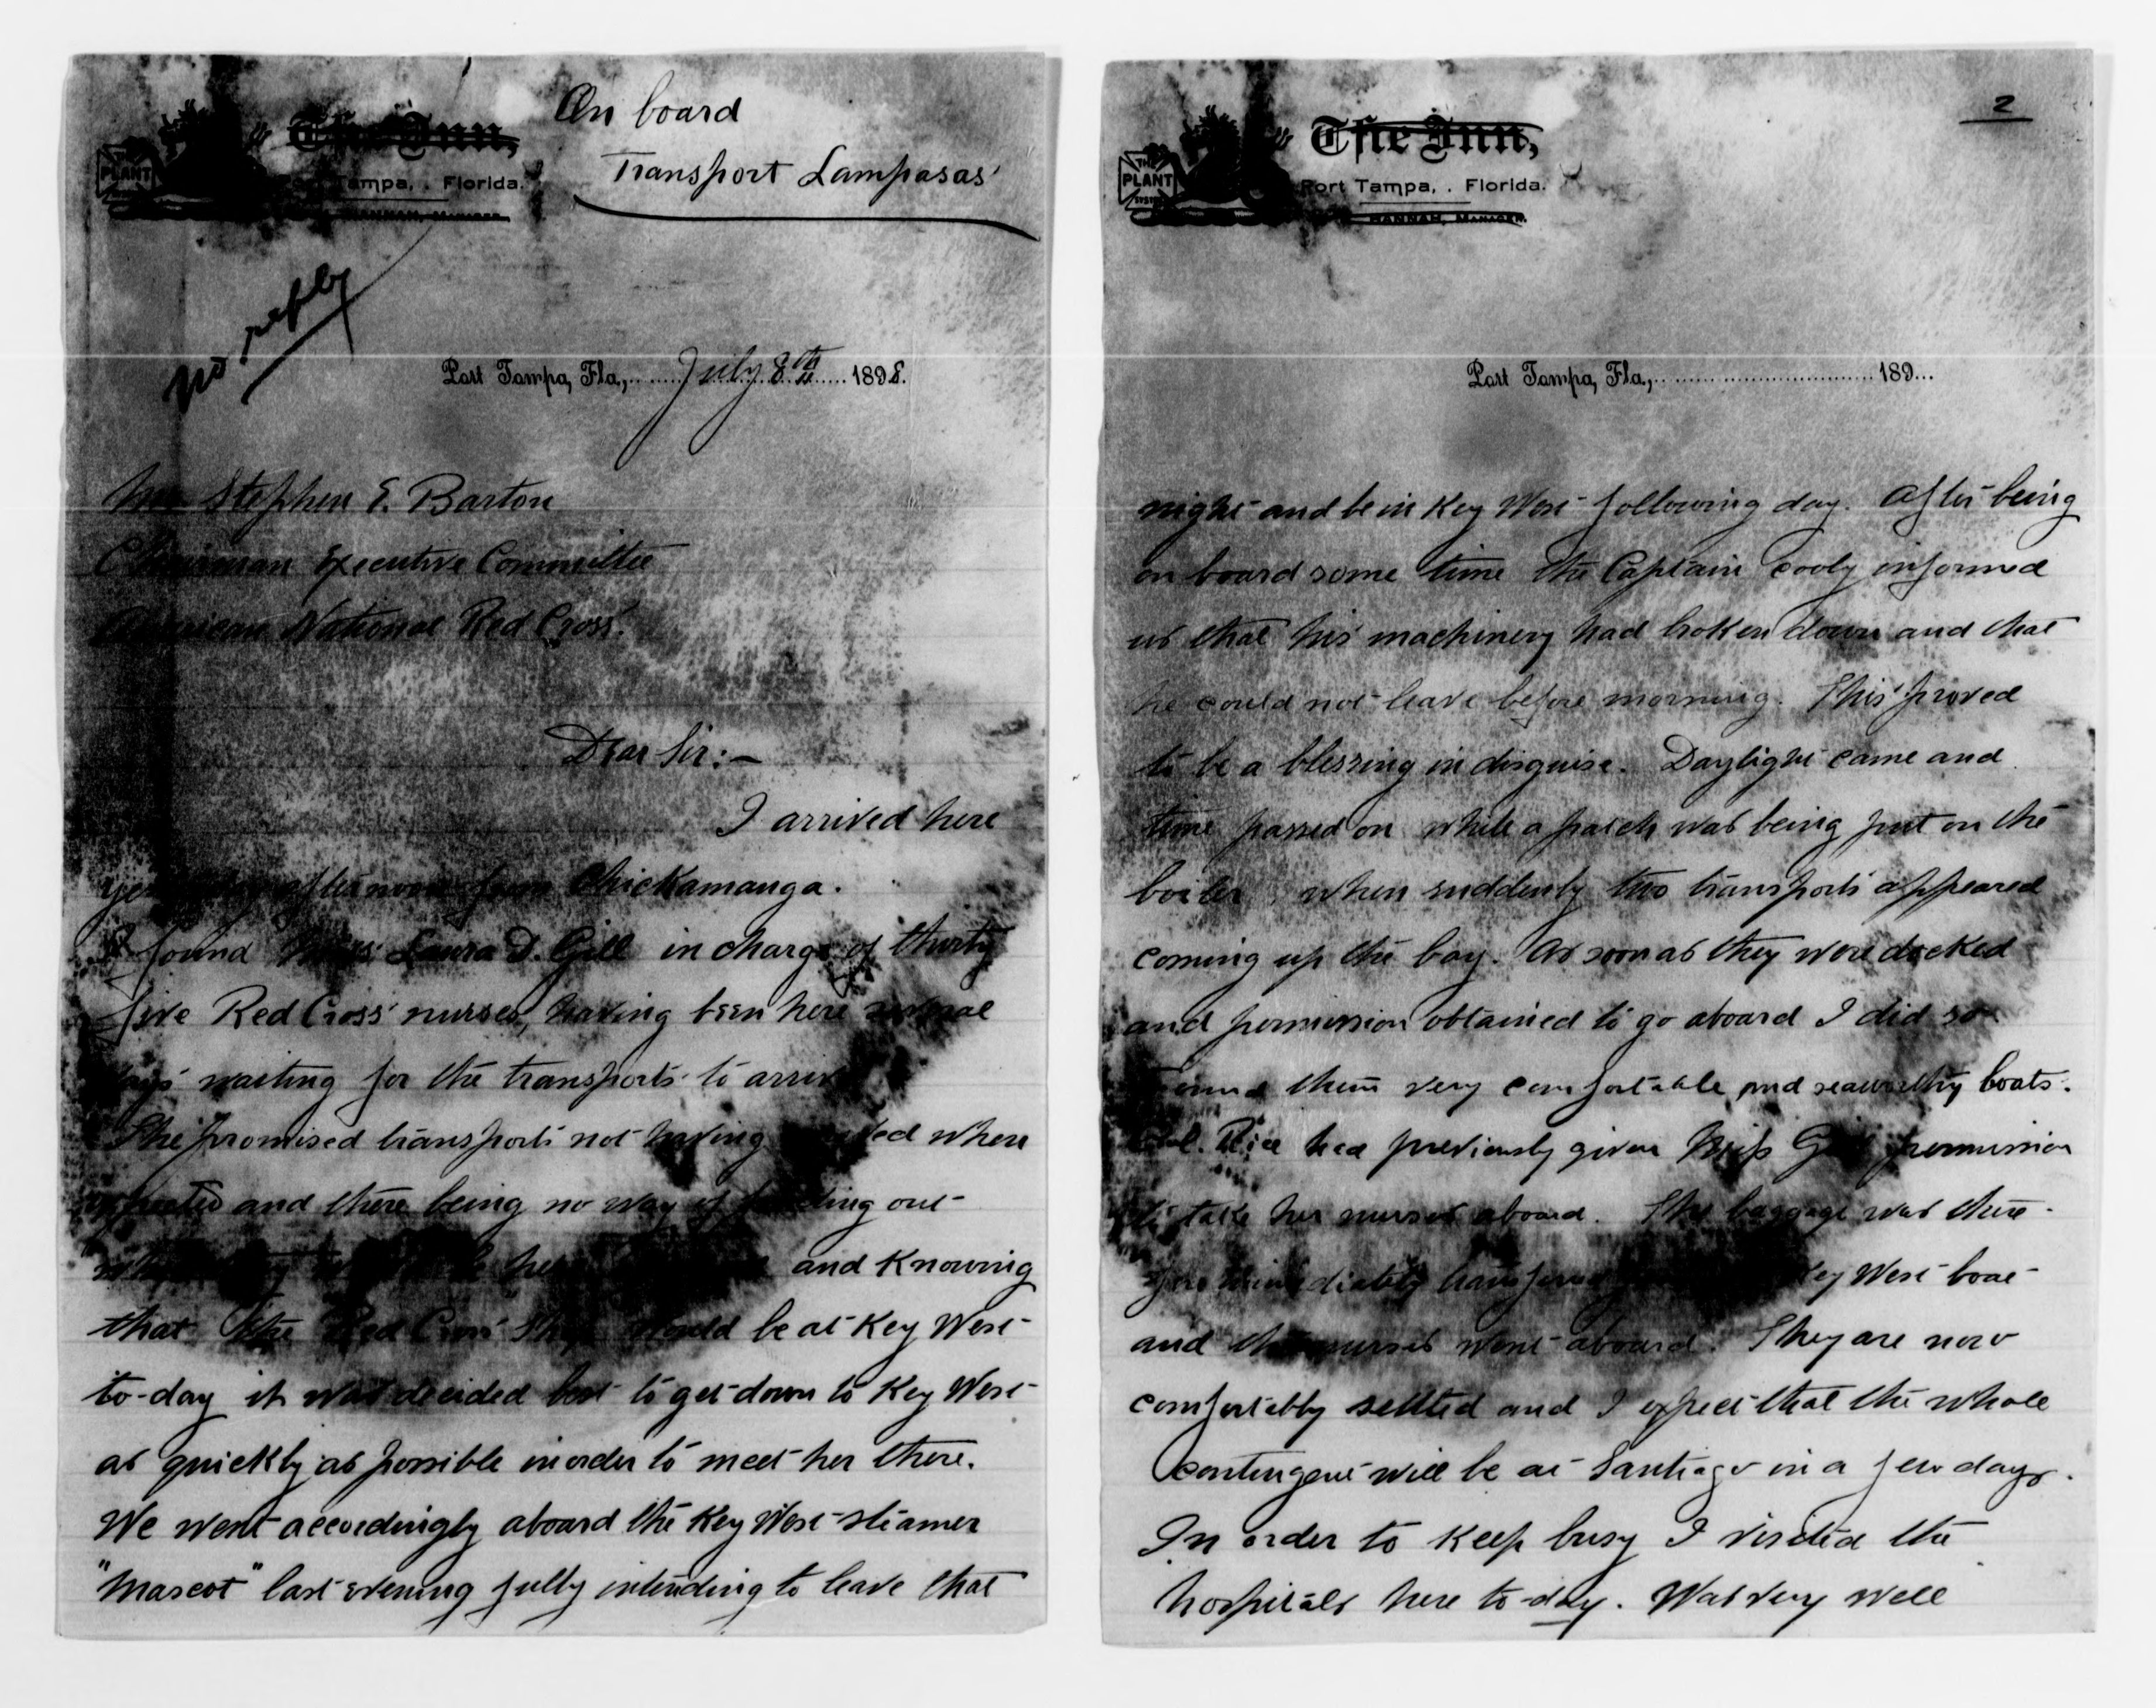 On board
Transport Lampasas
THE PLANT
The Inn,
Tampa, . Florida.
HANNAH, MANAGER.
no reply
Port Tampa, Fla., July 8th 1898.
Mr Stephen E. Barton
Chairman Executive Committee
American National Red Cross.
Dear Sir:—
I arrived here
yesterday afternoon from Chickamauga.
I found Miss Laura D. Gill in charge of thirty
five Red Cross nurses, having been here several
days waiting for the transports to arrive
The promised transports not having arrived when
expected and there being no way of finding out
here and knowing
that the Red Cross Ship would be at Key West
to-day it was decided best to get down to Key West
as quickly as possible in order to meet her there.
We went accordingly aboard the Key West steamer
"Mascot" last evening fully intending to leave that
2
THE PLANT SYSTEM
The Inn,
Port Tampa, . Florida.
HANNAH, MANAGER.
Port Tampa, Fla., 189
night and be in Key West following day. After being
on board some time the Captain cooly informed
us that his machinery had broken down and that
he could not leave before morning. This proved
to be a blessing in disguise. Daylight came and
time passed on while a patch was being put on the
boiler, when suddenly two transports appeared
coming up the bay. As soon as they were docked
and permission obtained to go aboard I did so.
found them very comfortable and seaworthy boats.
Col. Rice had previously given Miss Gill permission
to take her nurses aboard. The baggage was there-
fore immediately transferred Key West boat
and the nurses went aboard. They are now
comfortably settled and I expect that the whole
contingent will be at Santiago in a few days.
In order to keep busy I visited the
hospitals here to-day. Was very well